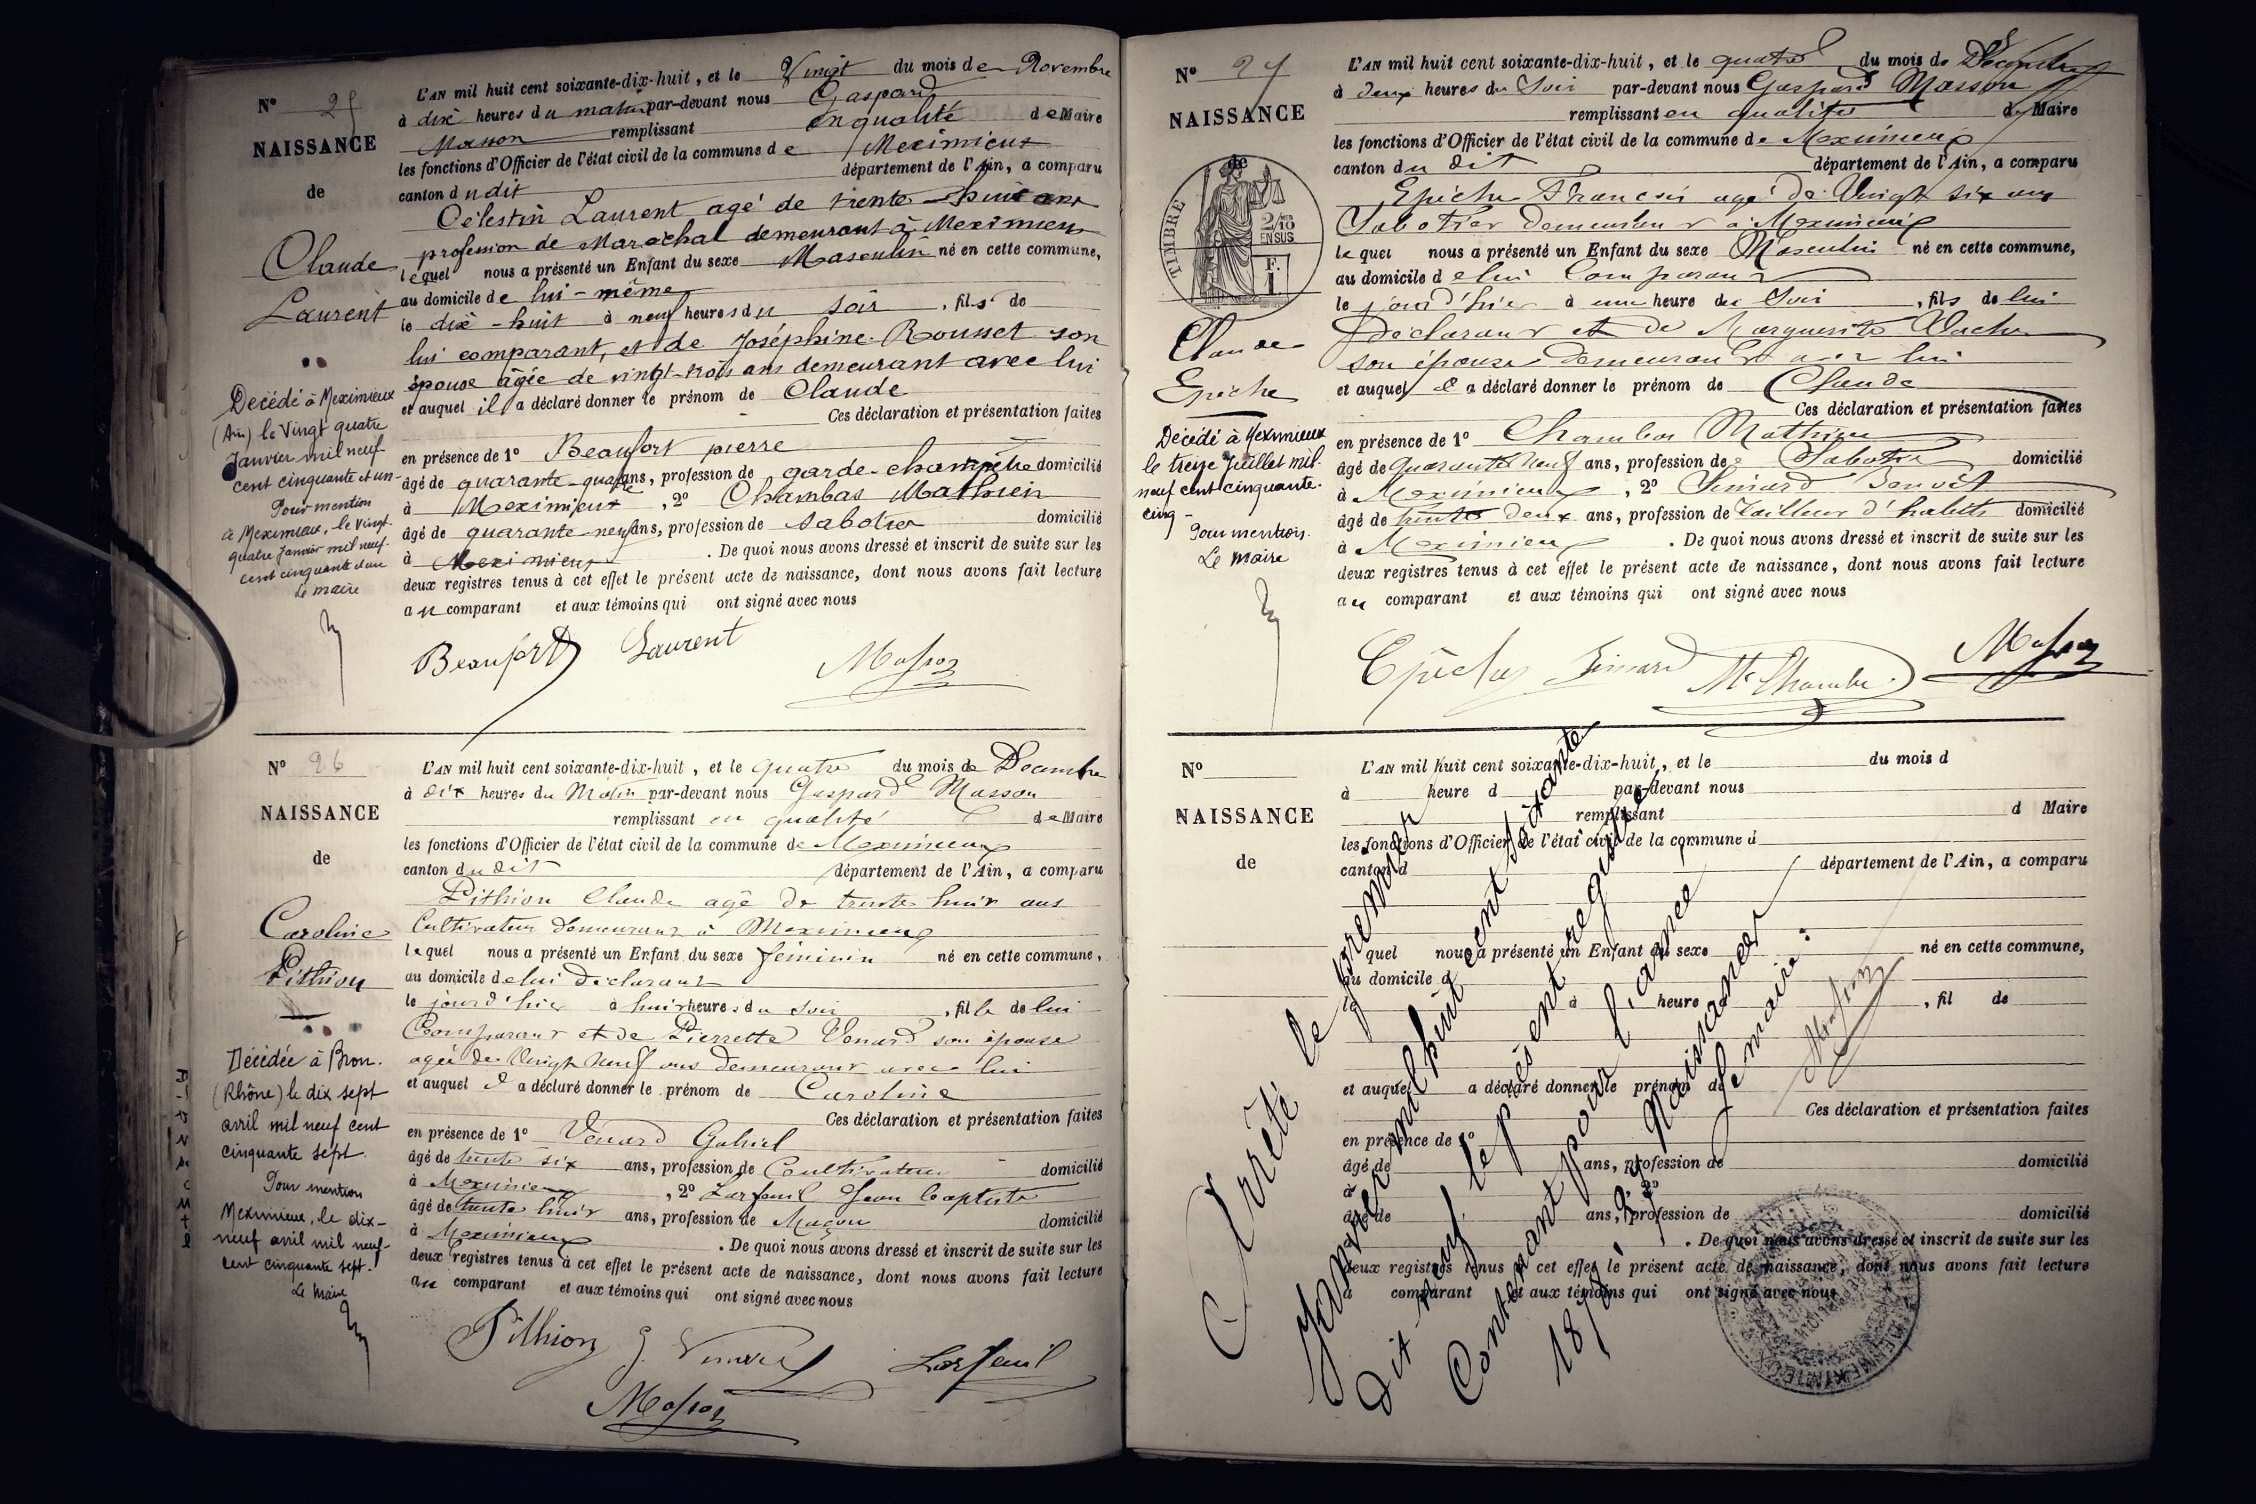 N° 25
NAISSANCE
de
Claude
Laurent
Décédé à Meximieux
(Ain) le Vingt quatre
Janvier mil neuf
cent cinquante et un -
Pour mention
à Meximieux, le vingt
quatre Janvier mil neuf
cent cinquante et un
Le maire
L'AN mil huit cent soixante-dix-huit, et le Vingt du mois de Novembre
à dix heures du matin par-devant nous Gaspard
Masson remplissant en qualité de Maire
les fonctions d'Officier de l'état civil de la commune de Meximieux
canton du dit département de l'Ain, a comparu
Célestin Laurent agé de trente-huit ans
profession de Maréchal demeurant à Meximieux
lequel nous a présenté un Enfant du sexe Masculin né en cette commune,
au domicile de lui-même
le dix-huit à neuf heures du soir, fils de
lui comparant, et de Joséphine Rousset son
épouse âgée de vingt-trois ans demeurant avec lui
et auquel il a déclaré donner le prénom de Claude
Ces déclaration et présentation faites
en présence de 1° Beaufort pierre
âgé de quarante-quatre ans, profession de garde-champêtre domicilié
à Meximieux, 2° Chambas Mathieu
âgé de quarante-neuf ans, profession de sabotier domicilié
à Meximieux. De quoi nous avons dressé et inscrit de suite sur les
deux registres tenus à cet effet le présent acte de naissance, dont nous avons fait lecture
au comparant et aux témoins qui ont signé avec nous
Beaufort Laurent Masson
N° 26
NAISSANCE
de
Caroline
Pithion
Décédée à Bron.
(Rhône) le dix sept
avril mil neuf cent
cinquante sept.
Pour mention
Meximieux, le dix-
neuf avril mil neuf-
cent cinquante sept.
Le Maire
L'AN mil huit cent soixante-dix-huit, et le quatre du mois de Décembre
à dix heures du Matin par-devant nous Gaspard Masson
remplissant en qualité de Maire
les fonctions d'Officier de l'état civil de la commune de Meximieux
canton du dit département de l'Ain, a comparu
Pithion Claude agé de trente huit ans
Cultivateur demeurant à Meximieux
lequel nous a présenté un Enfant du sexe féminin né en cette commune,
au domicile de lui déclarant
le jour d'hier à huit heures du soir, fille de lui
Comparant et de Pierrette Venard son épouse
agée de Vingt Neuf ans demeurant avec lui
et auquel il a déclaré donner le prénom de Caroline
Ces déclaration et présentation faites
en présence de 1° Vénard Gabriel
âgé de trente six ans, profession de Cultivateur domicilié
à Meximieux, 2° Larfeuil Jean baptiste
âgé de trente huit ans, profession de Maçon domicilié
à Meximieux. De quoi nous avons dressé et inscrit de suite sur les
deux registres tenus à cet effet le présent acte de naissance, dont nous avons fait lecture
au comparant et aux témoins qui ont signé avec nous
Pithion G. Venard Larfeuil
Masson
N° 27
NAISSANCE
de
TIMBRE
2/10
EN SUS
F.
1
Claude
Epiche
Décédé à Meximieux
le treize Juillet mil-
neuf cent cinquante-
cinq -
Pour mention.
Le Maire
L'AN mil huit cent soixante-dix-huit, et le quatre du mois de Décembre
à deux heures du Soir par-devant nous Gaspard Masson
remplissant en qualité de Maire
les fonctions d'Officier de l'état civil de la commune de Meximieux
canton du dit département de l'Ain, a comparu
Epiche Francois agé de Vingt six ans
Sabotier demeurant à Meximieux
lequel nous a présenté un Enfant du sexe Masculin né en cette commune,
au domicile de lui Comparant
le jour d'hier à une heure du Soir, fils de lui
Déclarant et de Marguerite Vacher
son épouse demeurant avec lui
et auquel il a déclaré donner le prénom de Claude
Ces déclaration et présentation faites
en présence de 1° Chambas Mathieu
âgé de Quarante Neuf ans, profession de Sabotier domicilié
à Meximieux, 2° Simard Benoit
âgé de trente deux ans, profession de Tailleur d'habits domicilié
à Meximieux. De quoi nous avons dressé et inscrit de suite sur les
deux registres tenus à cet effet le présent acte de naissance, dont nous avons fait lecture
au comparant et aux témoins qui ont signé avec nous
Epiche Simard Mt Chambas Masson
N°
NAISSANCE
de
L'AN mil huit cent soixante-dix-huit, et le du mois d
à heure d par-devant nous
remplissant d Maire
les fonctions d'Officier de l'état civil de la commune d
canton d département de l'Ain, a comparu
quel nous a présenté un Enfant du sexe né en cette commune,
au domicile d
le à heure , fil de
et auquel a déclaré donner le prénom de
Ces déclaration et présentation faites
en présence de 1°
âgé de ans, profession de domicilié
à 2°
âgé de ans, profession de domicilié
. De quoi nous avons dressé et inscrit de suite sur les
deux registres tenus à cet effet le présent acte de naissance, dont nous avons fait lecture
a comparant et aux témoins qui ont signé avec nous
Arrêté le premier
Janvier mil huit cent soixante
dix neuf le présent registre
Contenant pour l'année
1878 29 Naissances
Le maire:
Masson